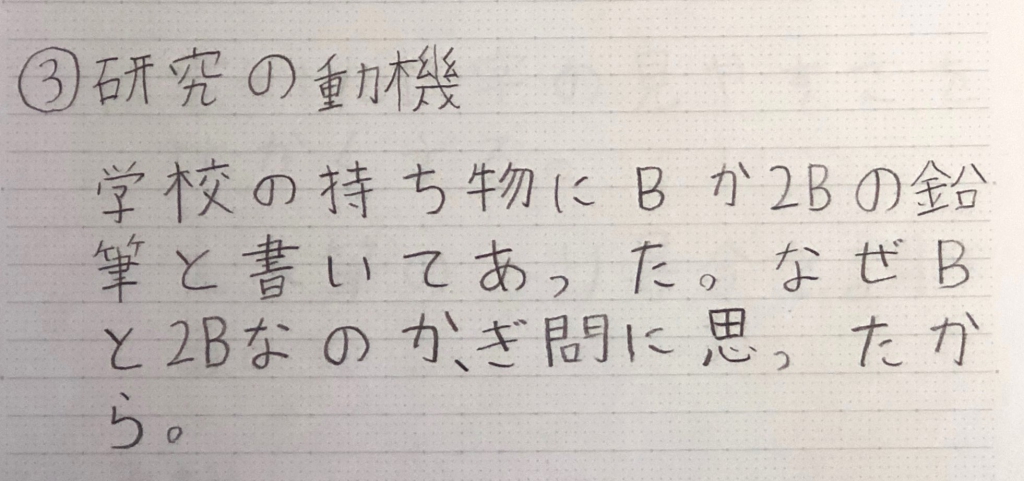 ③研究の動機
学校の持ち物にBか2Bの鉛
筆と書いてあった。なぜB
と2Bなのか、ぎ問に思ったか
ら。